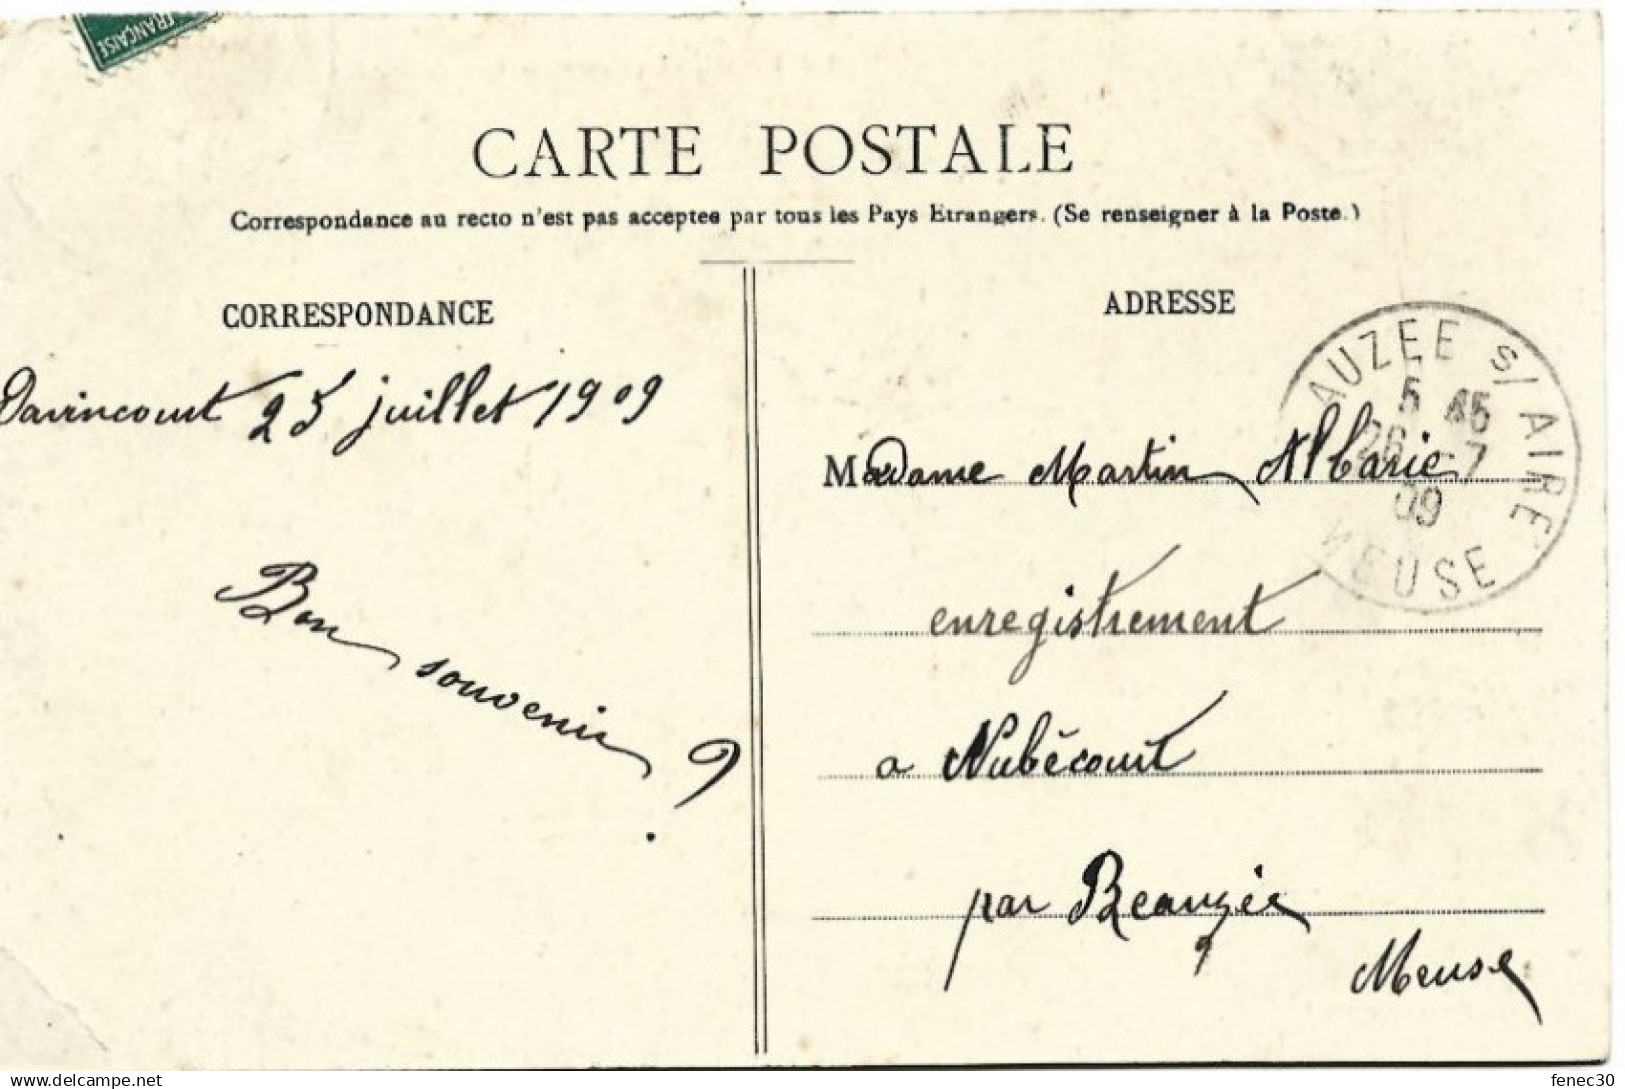 FRANÇAISE
CARTE POSTALE
Correspondance au recto n'est pas acceptee par tous les Pays Etrangers. (Se renseigner à la Poste.)
CORRESPONDANCE
25 juillet 1909
Bon souvenir
ADRESSE
AUZEE S/ AIRE
5 45
26 -7
09
MEUSE
Madame Martin Albaric
enregistrement
a Nubécourt
par Beauzée
Meuse
fenec30